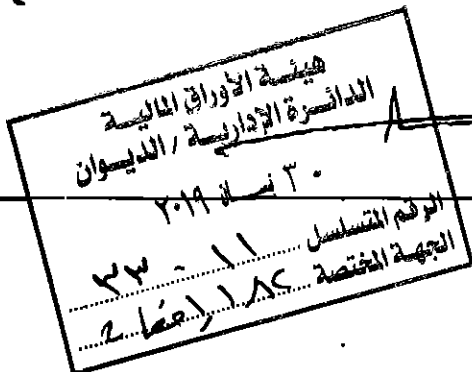 هيئة الأوراق المالية
الدائرة الإدارية / الديوان
٣٠ نيسان ٢٠١٩
الرقم المتسلسل
الجهة المختصة